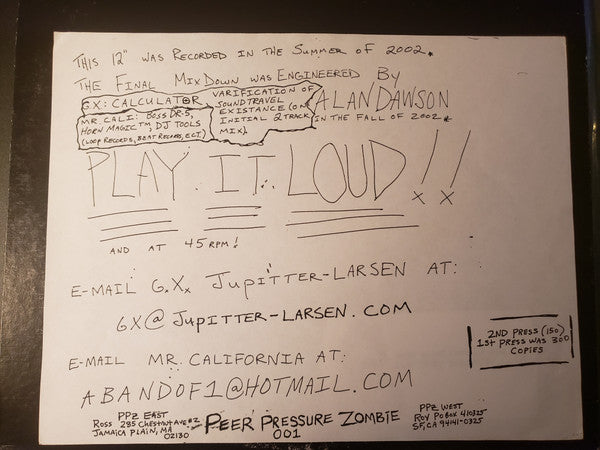 THIS 12" WAS RECORDED IN THE SUMMER OF 2002.
THE FINAL MIXDOWN WAS ENGINEERED BY
ALAN DAWSON
IN THE FALL OF 2002.
G.X.: CALCULATOR
MR. CALI: BOSS DR-5,
HORN MAGIC™, DJ TOOLS
(LOOP RECORDS, BEAT RECORDS, ECT.)
VARIFICATION OF
SOUND TRAVEL
EXISTANCE (ON
INITIAL 2 TRACK
MIX).
PLAY IT LOUD!!
AND AT 45 RPM!
E-MAIL G.X. JUPITTER-LARSEN AT:
GX@JUPITTER-LARSEN.COM
E-MAIL MR. CALIFORNIA AT:
ABANDOF1@HOTMAIL.COM
2ND PRESS (150)
1ST PRESS WAS 300
COPIES
PPZ EAST
ROSS 285 CHESTNUT AVE #2
JAMAICA PLAIN, MA
02130
PEER PRESSURE ZOMBIE
001
PPZ WEST
ROY PO BOX 410325
SF, CA 94141-0325